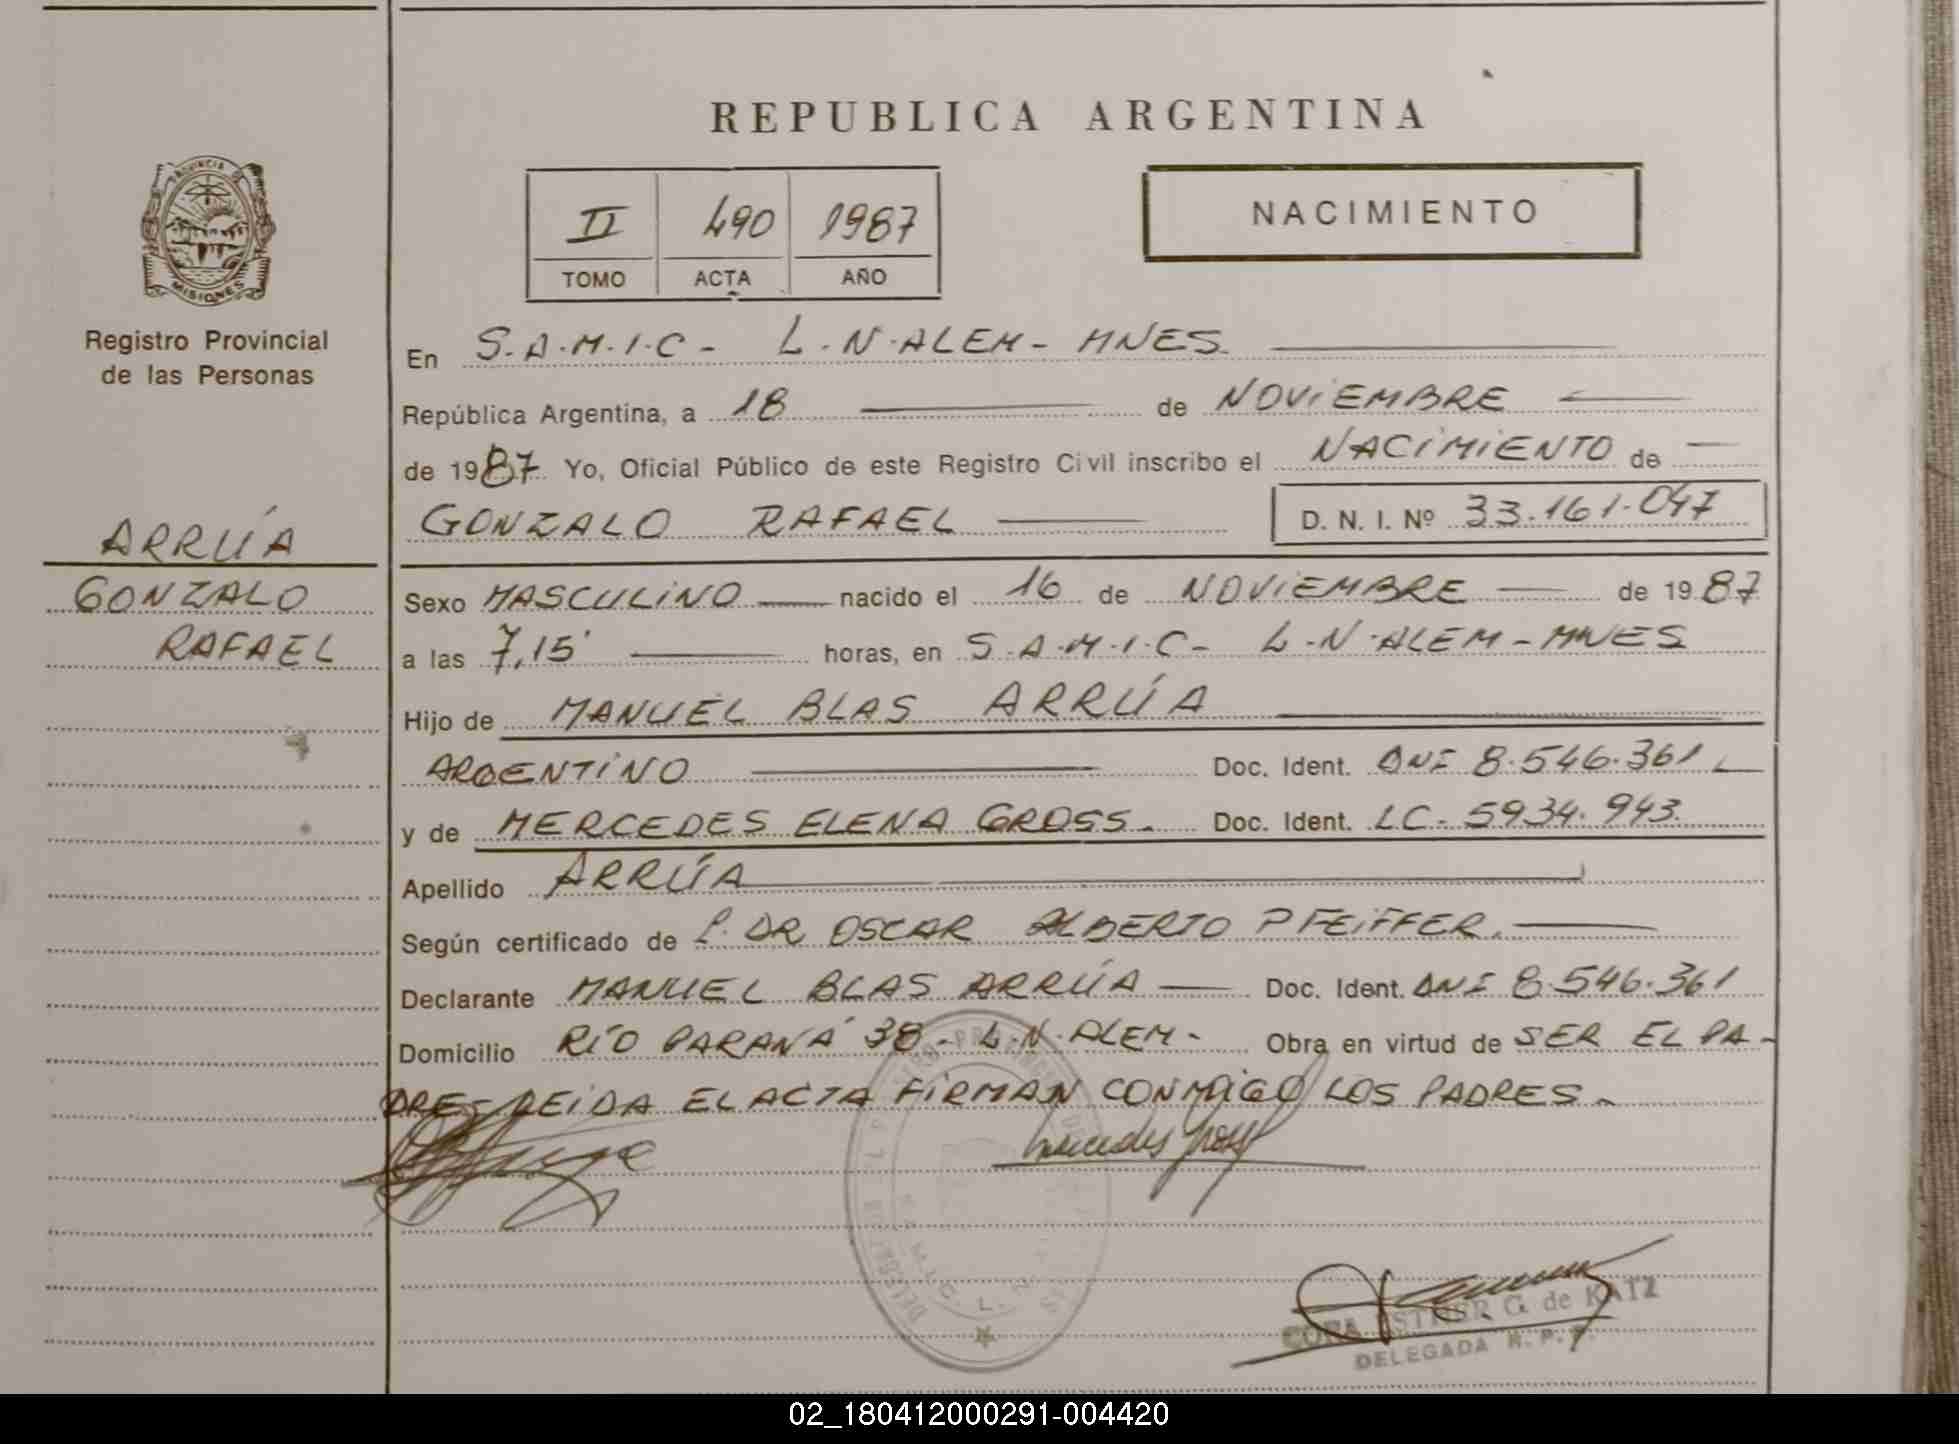 REPUBLICA ARGENTINA
PROVINCIA DE
MISIONES
Registro Provincial
de las Personas
II 490 1987
TOMO ACTA AÑO
NACIMIENTO
En S.A.M.I.C- L.N.ALEM- MNES.
República Argentina, a 18 de NOVIEMBRE
de 1987 Yo, Oficial Público de este Registro Civil inscribo el NACIMIENTO de
GONZALO RAFAEL D. N. I. Nº 33.161.047
ARRÚA
GONZALO
RAFAEL
Sexo MASCULINO nacido el 16 de NOVIEMBRE de 1987
a las 7,15' horas, en S.A.M.I.C- L.N.ALEM-MNES
Hijo de MANUEL BLAS ARRÚA
ARGENTINO Doc. Ident. DNI 8.546.361
y de MERCEDES ELENA GROSS. Doc. Ident. LC. 5934.943.
Apellido ARRÚA
Según certificado de P. DR OSCAR ALBERTO PFEIFFER.
Declarante MANUEL BLAS ARRÚA Doc. Ident. DNI 8.546.361
Domicilio RÍO PARANÁ 38- L.N.ALEM- Obra en virtud de SER EL PA-
DRE- LEIDA EL ACTA FIRMAN CONMIGO LOS PADRES.
Mercedes Gross
CORA ESTHER G. de KATZ
DELEGADA R. P. P.
02_180412000291-004420